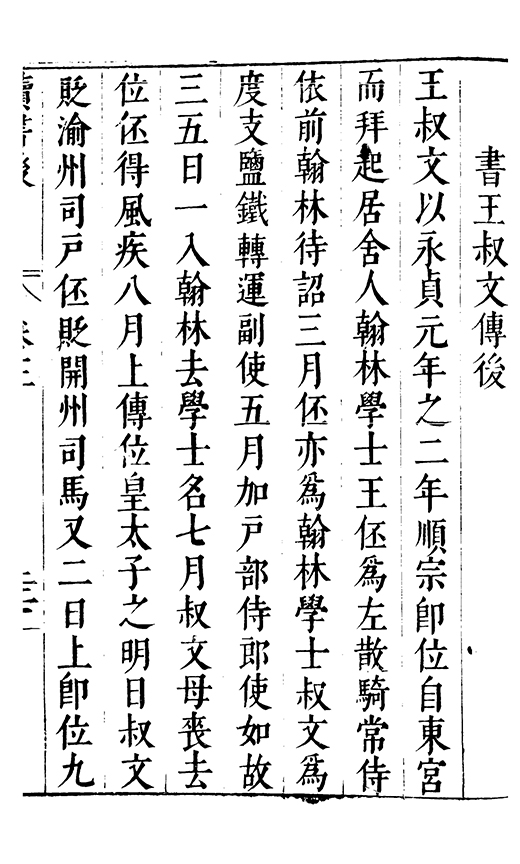 書王叔文傳後
王叔文以永貞元年之二年順宗卽位自東宮
而拜起居舍人翰林學士王伾爲左散騎常侍
依前翰林待詔三月伾亦爲翰林學士叔文爲
度支鹽鐵轉運副使五月加戸部侍郎使如故
三五日一入翰林去學士名七月叔文母喪去
位伾得風疾八月上傳位皇太子之明日叔文
貶渝州司戸伾貶開州司馬又二日上卽位九
讀書後
卷三